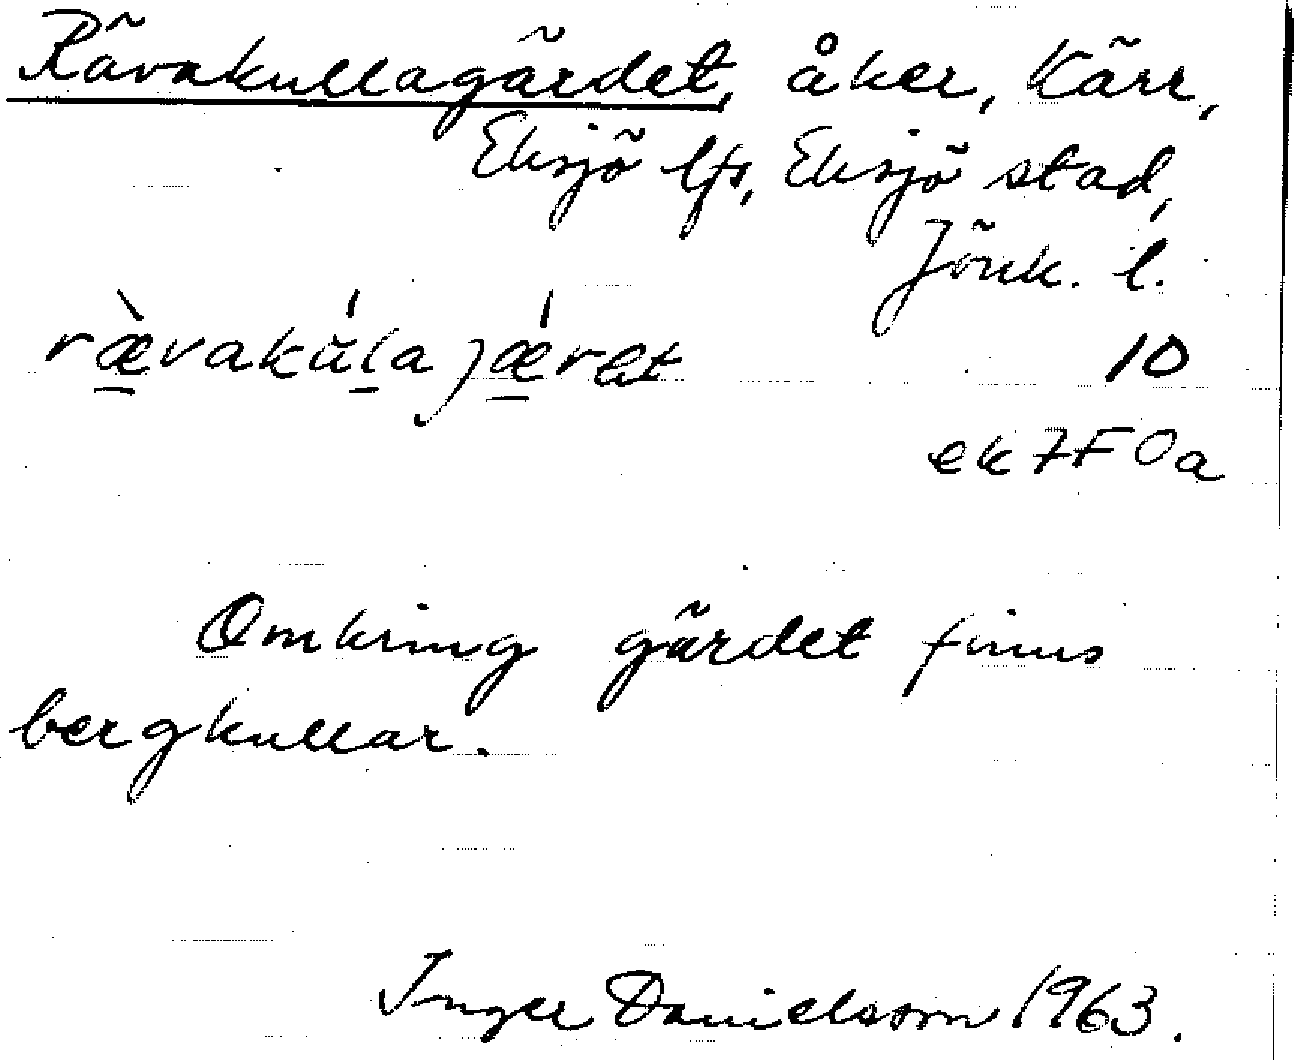 Rävakullagärdet, åker, Kärr,
Eksjö lfs, Eksjö stad,
Jönk. l.
ræ̀vakúl̠ajǽrət 10
ek 7F 0a
Omkring gärdet finns
bergkullar.
Inger Danielsson 1963.